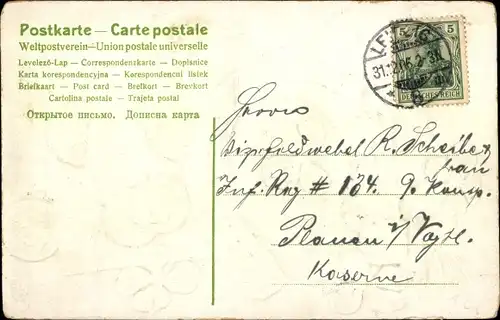 Postkarte — Carte postale
Weltpostverein — Union postale universelle
Levelező-Lap — Correspondenzkarte — Dopisnice
Karta korespondencyjna — Korespondenčni listek
Briefkaart — Post card — Brefkort — Brevkort
Cartolina postale — Trajeta postal
Открытое письмо. Дописна карта
5 5
DEUTSCHES REICH
31.12.06. 2-3N
Herrn
Vizefeldwebel R. Scheibe &
Frau
Inf. Reg # 134. 9. Komp.
Plauen i/Vogtl.
Kaserne